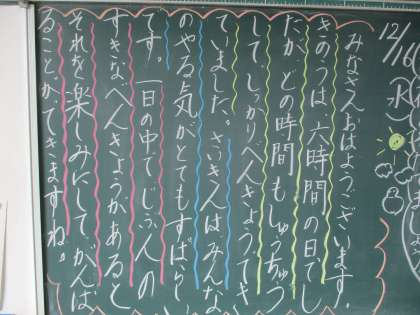 12/16
みなさんおはようございます。
きのうは、六時間の日でし
たが、どの時間もしゅうちゅう
して、しっかりべんきょうでき
ていました。さいきんはみんな
のやる気がとてもすばらしい
です。一日の中でじぶんの
すきなべんきょうがあると
それを楽しみにしてがんば
ることができますね。